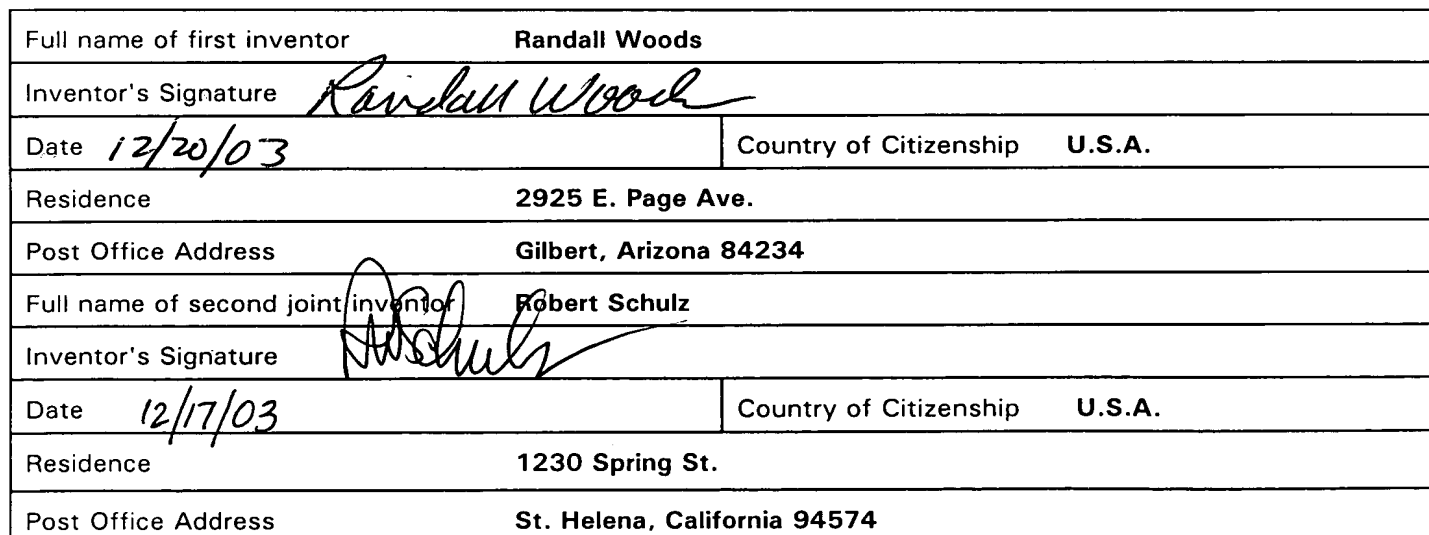 Full name of first inventor Randall Woods
Inventor's Signature Randall Woods
Date 12/20/03 Country of Citizenship U.S.A.
Residence 2925 E. Page Ave.
Post Office Address Gilbert, Arizona 84234
Full name of second joint inventor Robert Schulz
Inventor's Signature
Date 12/17/03 Country of Citizenship U.S.A.
Residence 1230 Spring St.
Post Office Address St. Helena, California 94574